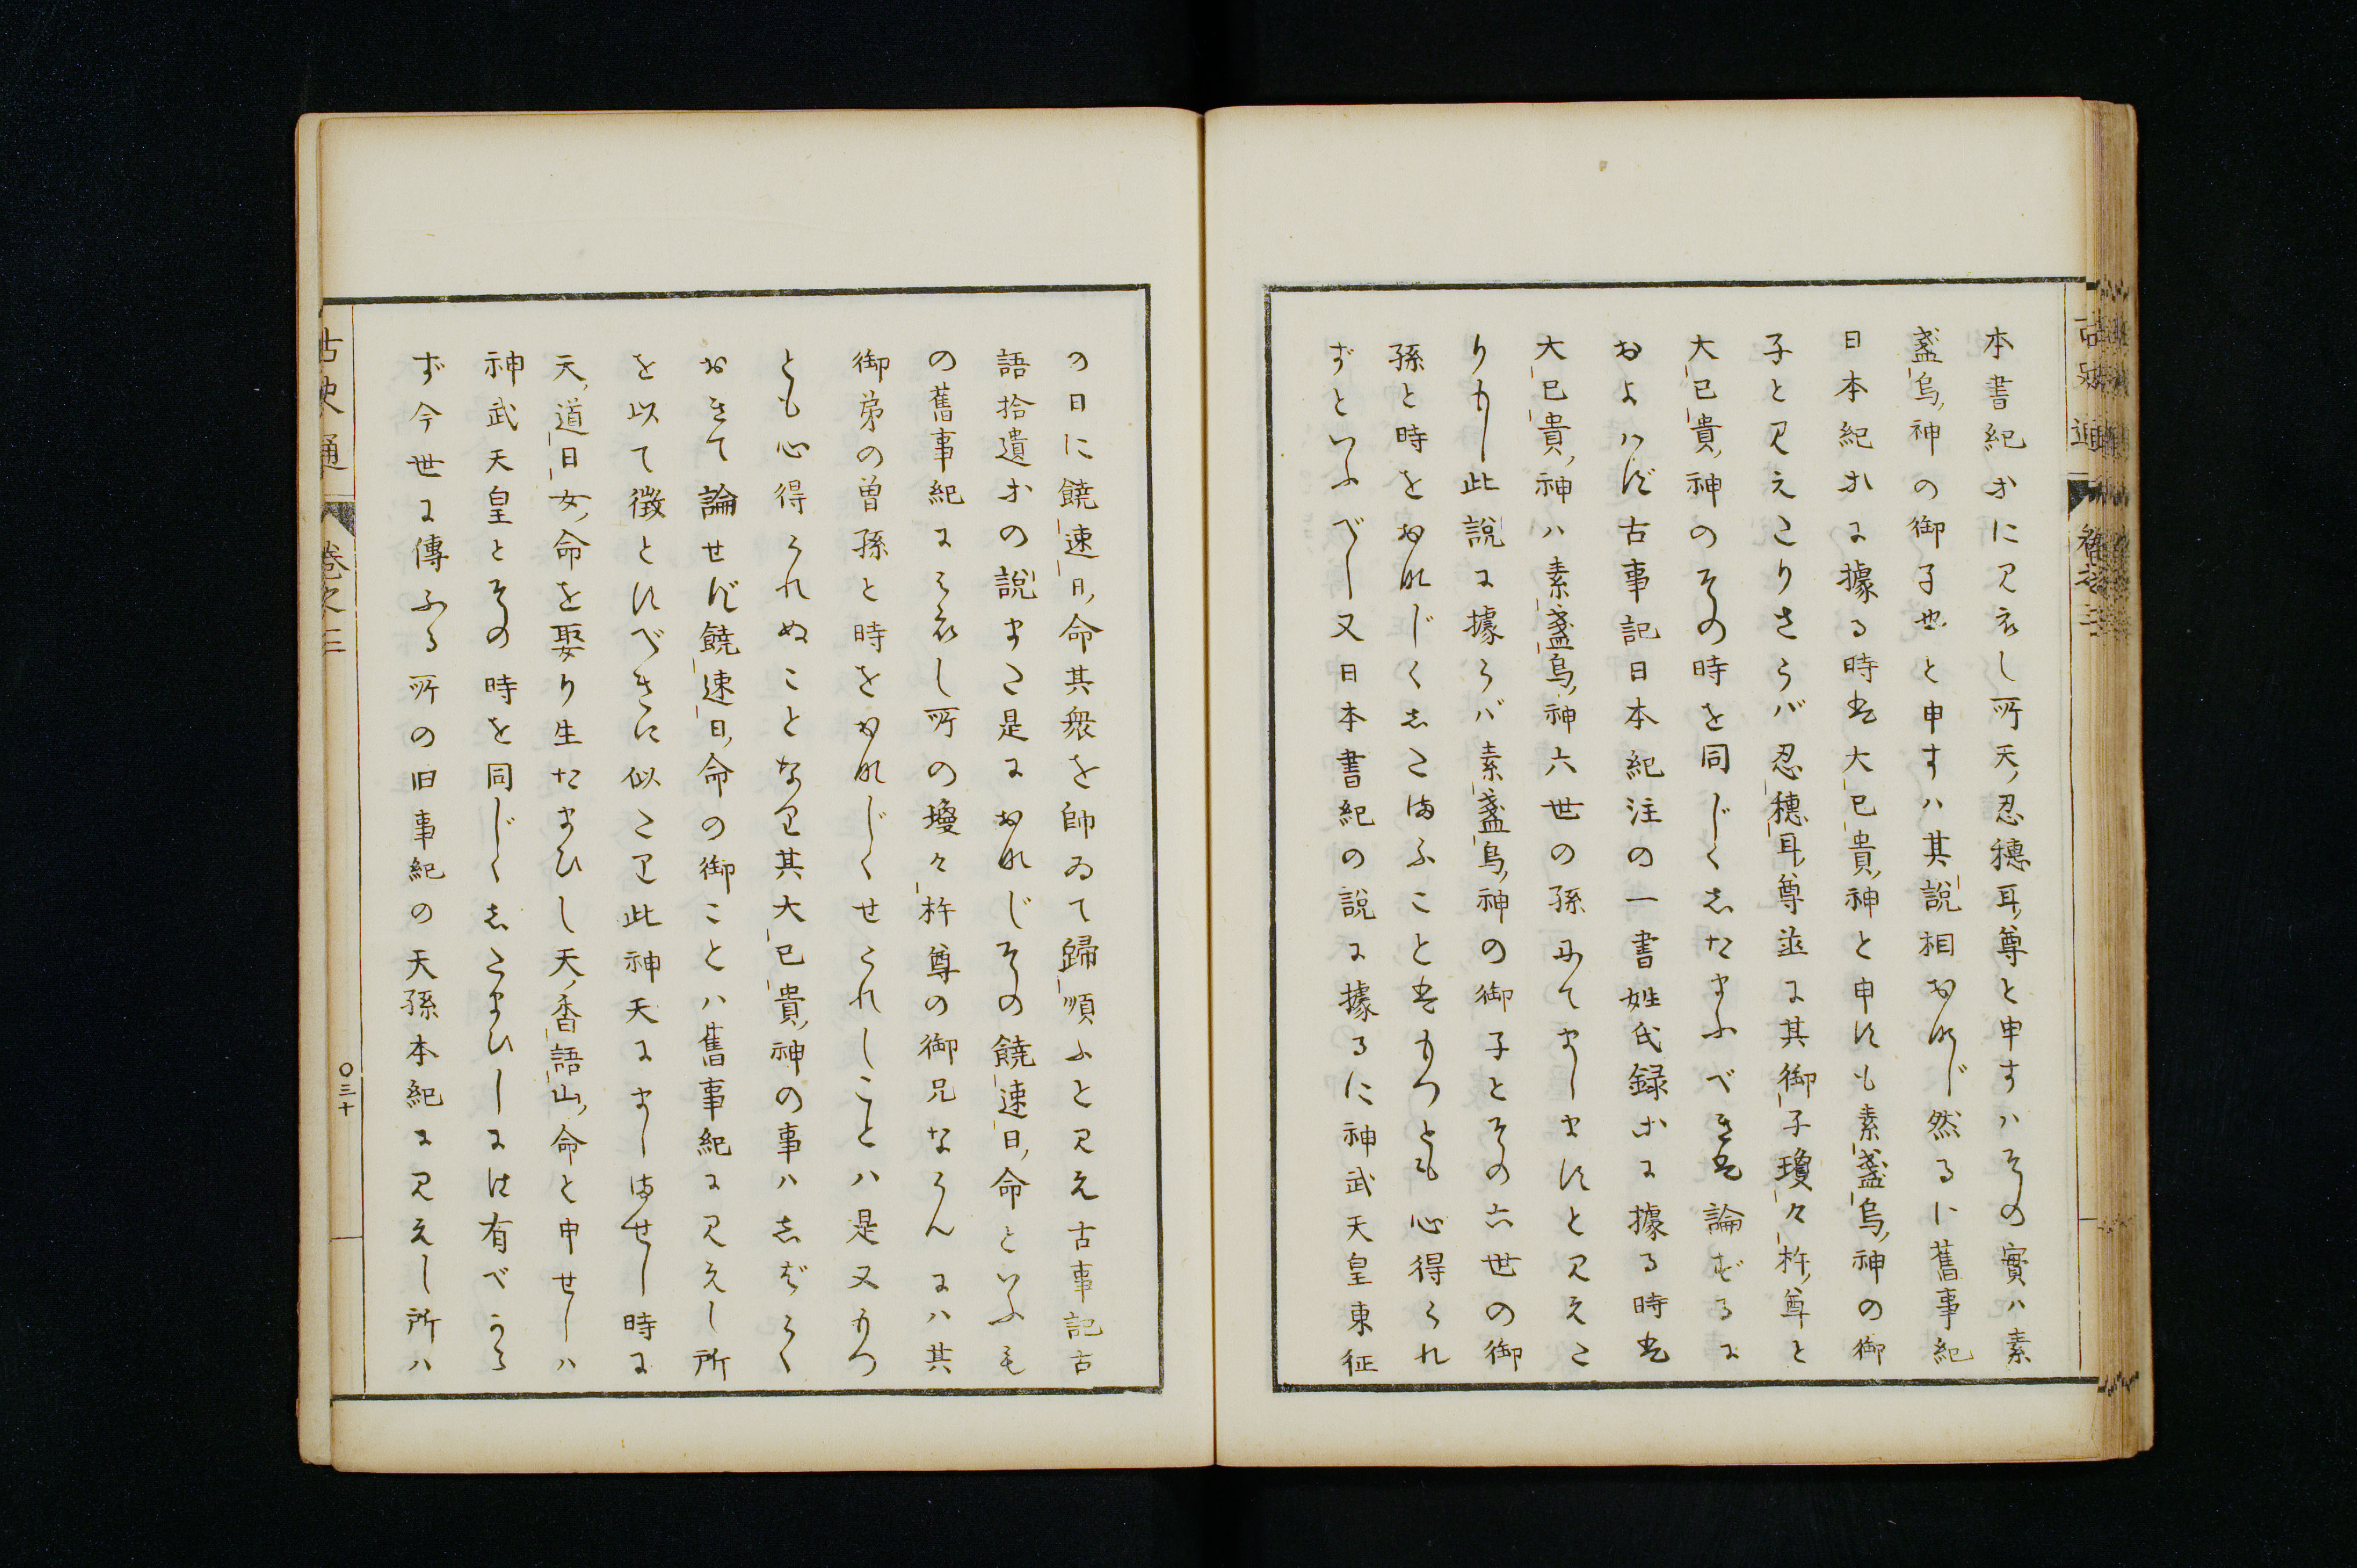 本書紀ホに見衣し所天忍穗耳尊と申すハその實ハ素
盞烏神の御子也と申すハ其說相おなじ然るに舊事紀
日本紀ホに據る時は大已貴神と申にも素盞烏神の御
子と見えたりさらバ忍穗耳尊並に其御子瓊々杵尊と
大已貴神のその時を同じくしたまふべきは論ずるに
およハず古事記日本紀注の一書姓氏録ホに據る時は
大已貴神ハ素盞烏神六世の孫にてましますと見えた
りもし此說に據らバ素盞烏神の御子とその六世の御
孫と時をおなじくしたまふことはもつとも心得られ
ずといふべし又日本書紀の說に據るに神武天皇東征
の日に饒速日命其衆を帥ゐて歸順ふと見え古事記古
語拾遺ホの說また是におなじその饒速日命といふも
の舊事紀にみえし所の瓊々杵尊の御兄ならんにハ其
御弟の曽孫と時をおなじくせられしことハ是又もつ
とも心得られぬことなり其大已貴神の事ハしばらく
おきて論せず饒速日命の御ことハ舊事紀に見えし所
を以て徴とすべきに似たり此神天にましませし時に
天道日女命を娶り生たまひし天香語山命と申せしハ
神武天皇とその時を同じくしたまひしには有べから
ず今世に傳ふる所の旧事紀の天孫本紀に見えし所ハ
古史通
卷之三
〇三十